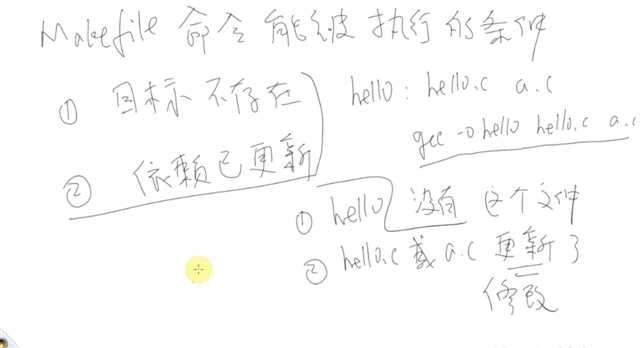 Makefile 命令能被执行的条件
① 目标不存在
② 依赖已更新
hello : hello.c a.c
gcc -o hello hello.c a.c
① hello 没有这个文件
② hello.c 或 a.c 更新了
修改